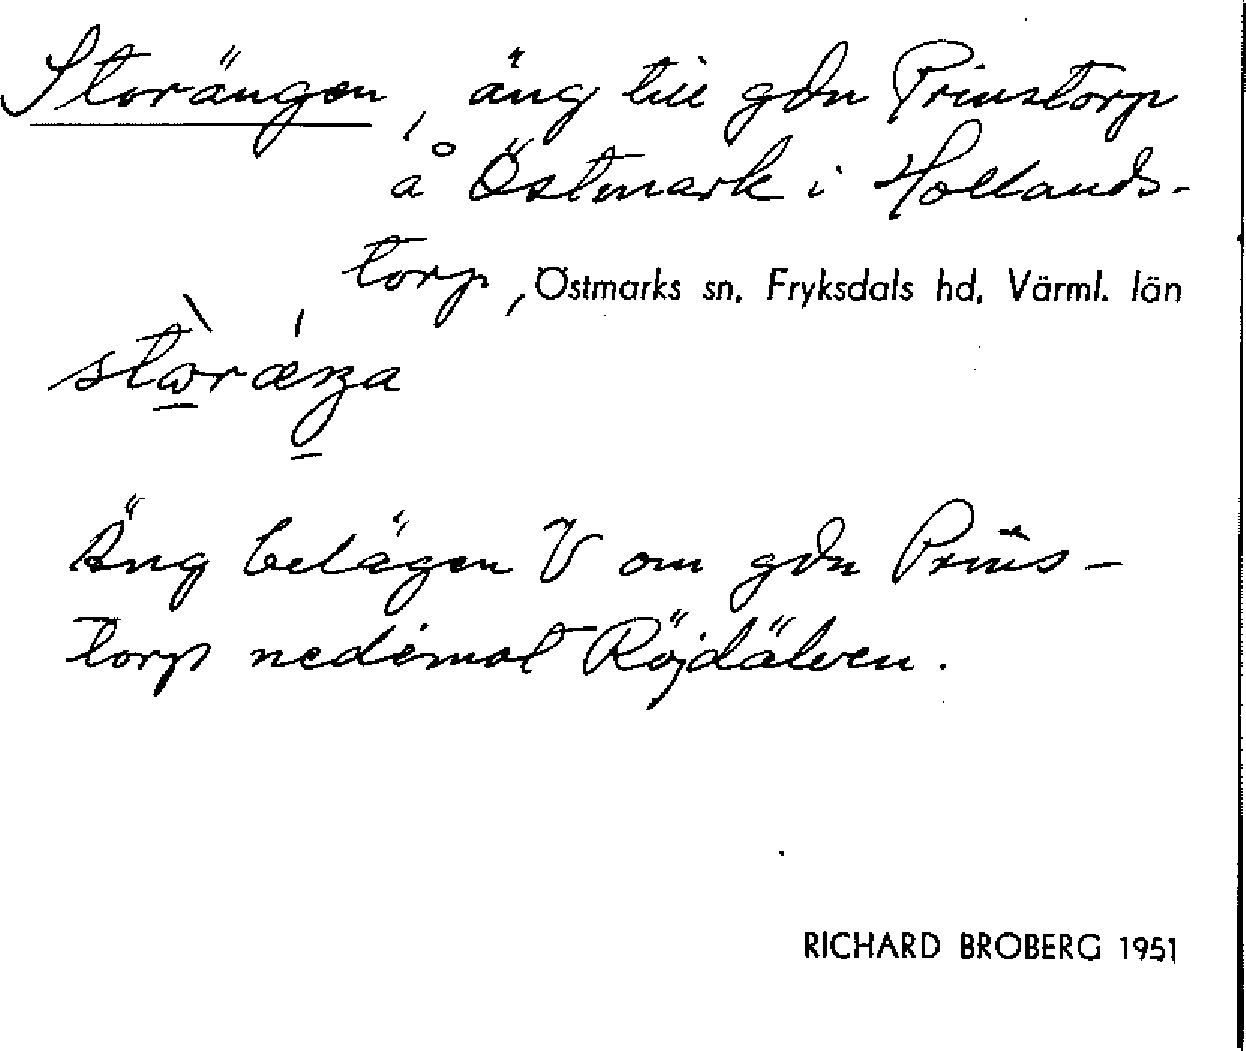 Storängen, äng till gdn Prinstorp
å Östmark i Hollands-
torp, Östmarks sn. Fryksdals hd. Värml. län
Äng belägen V om gdn Prins-
torp nedimot Röjdälven.
RICHARD BROBERG 1951